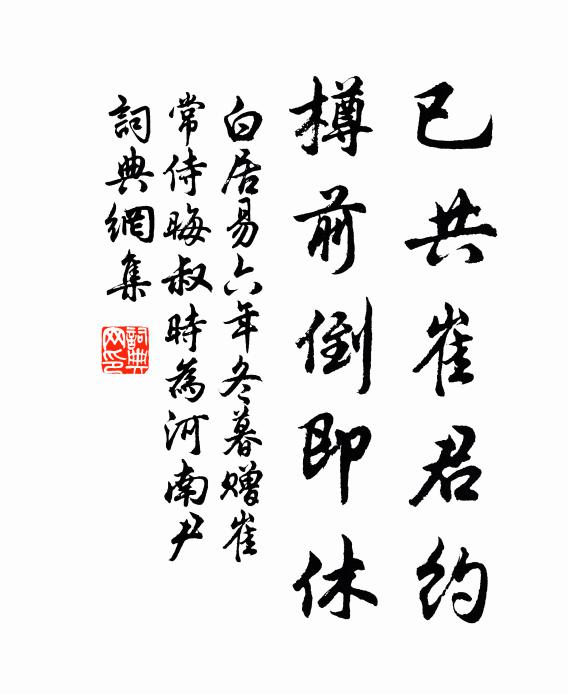 已共崔君约
樽前倒即休
白居易六年冬暮赠崔
常侍晦叔時為河南尹
詞典網集
詞典网印